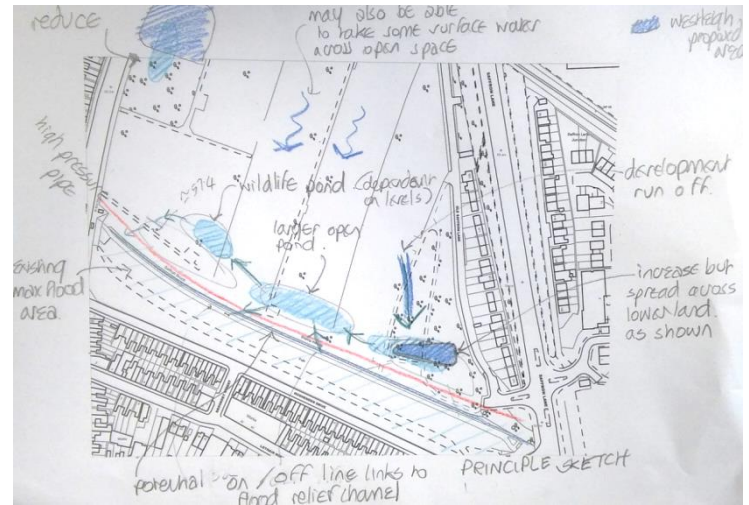 reduce
may also be able
to take some surface water
across open space
westleigh
proposed
area
high pressure
pipe
wildlife pond (dependent
on levels)
larger open
pond
development
run off.
existing
max flood
area.
increase but
spread across
lower land
as shown
potential on/off line links to
flood relief channel
PRINCIPLE SKETCH